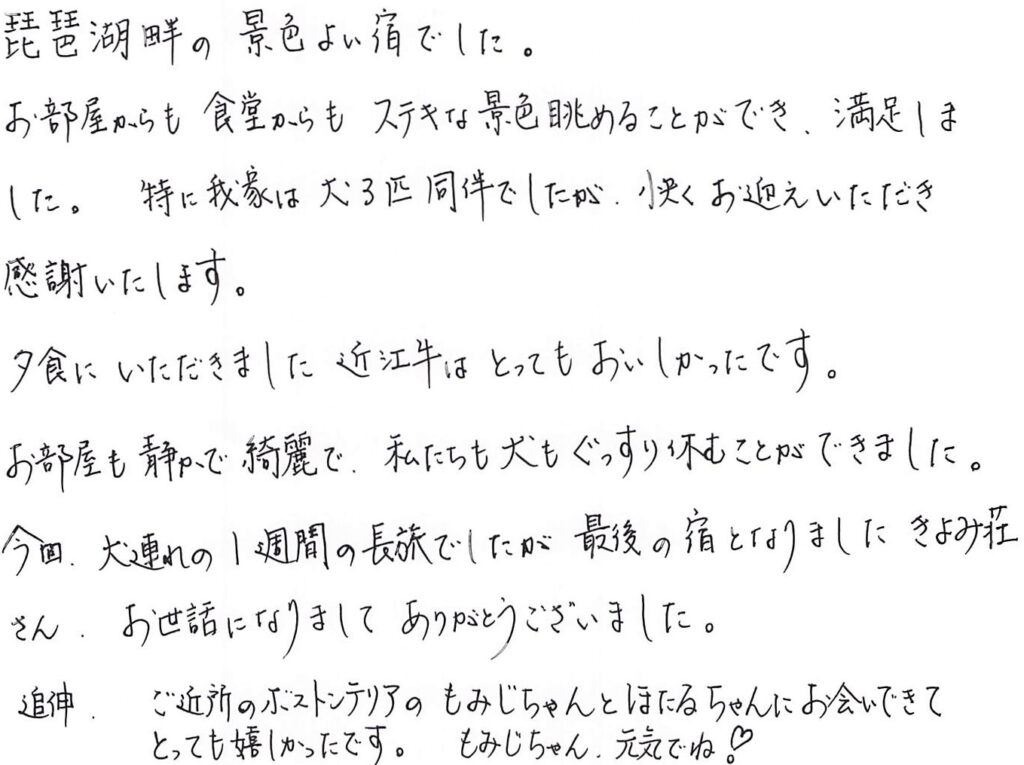 琵琶湖畔の景色よい宿でした。
お部屋からも食堂からもステキな景色眺めることができ、満足しま
した。 特に我家は犬3匹同伴でしたが、快くお迎えいただき
感謝いたします。
夕食にいただきました近江牛はとってもおいしかったです。
お部屋も静かで綺麗で、私たちも犬もぐっすり休むことができました。
今回、犬連れの1週間の長旅でしたが最後の宿となりましたきよみ荘
さん、お世話になりましてありがとうございました。
追伸、 ご近所のボストンテリアのもみじちゃんとほたるちゃんにお会いできて
とっても嬉しかったです。 もみじちゃん、元気でね♡